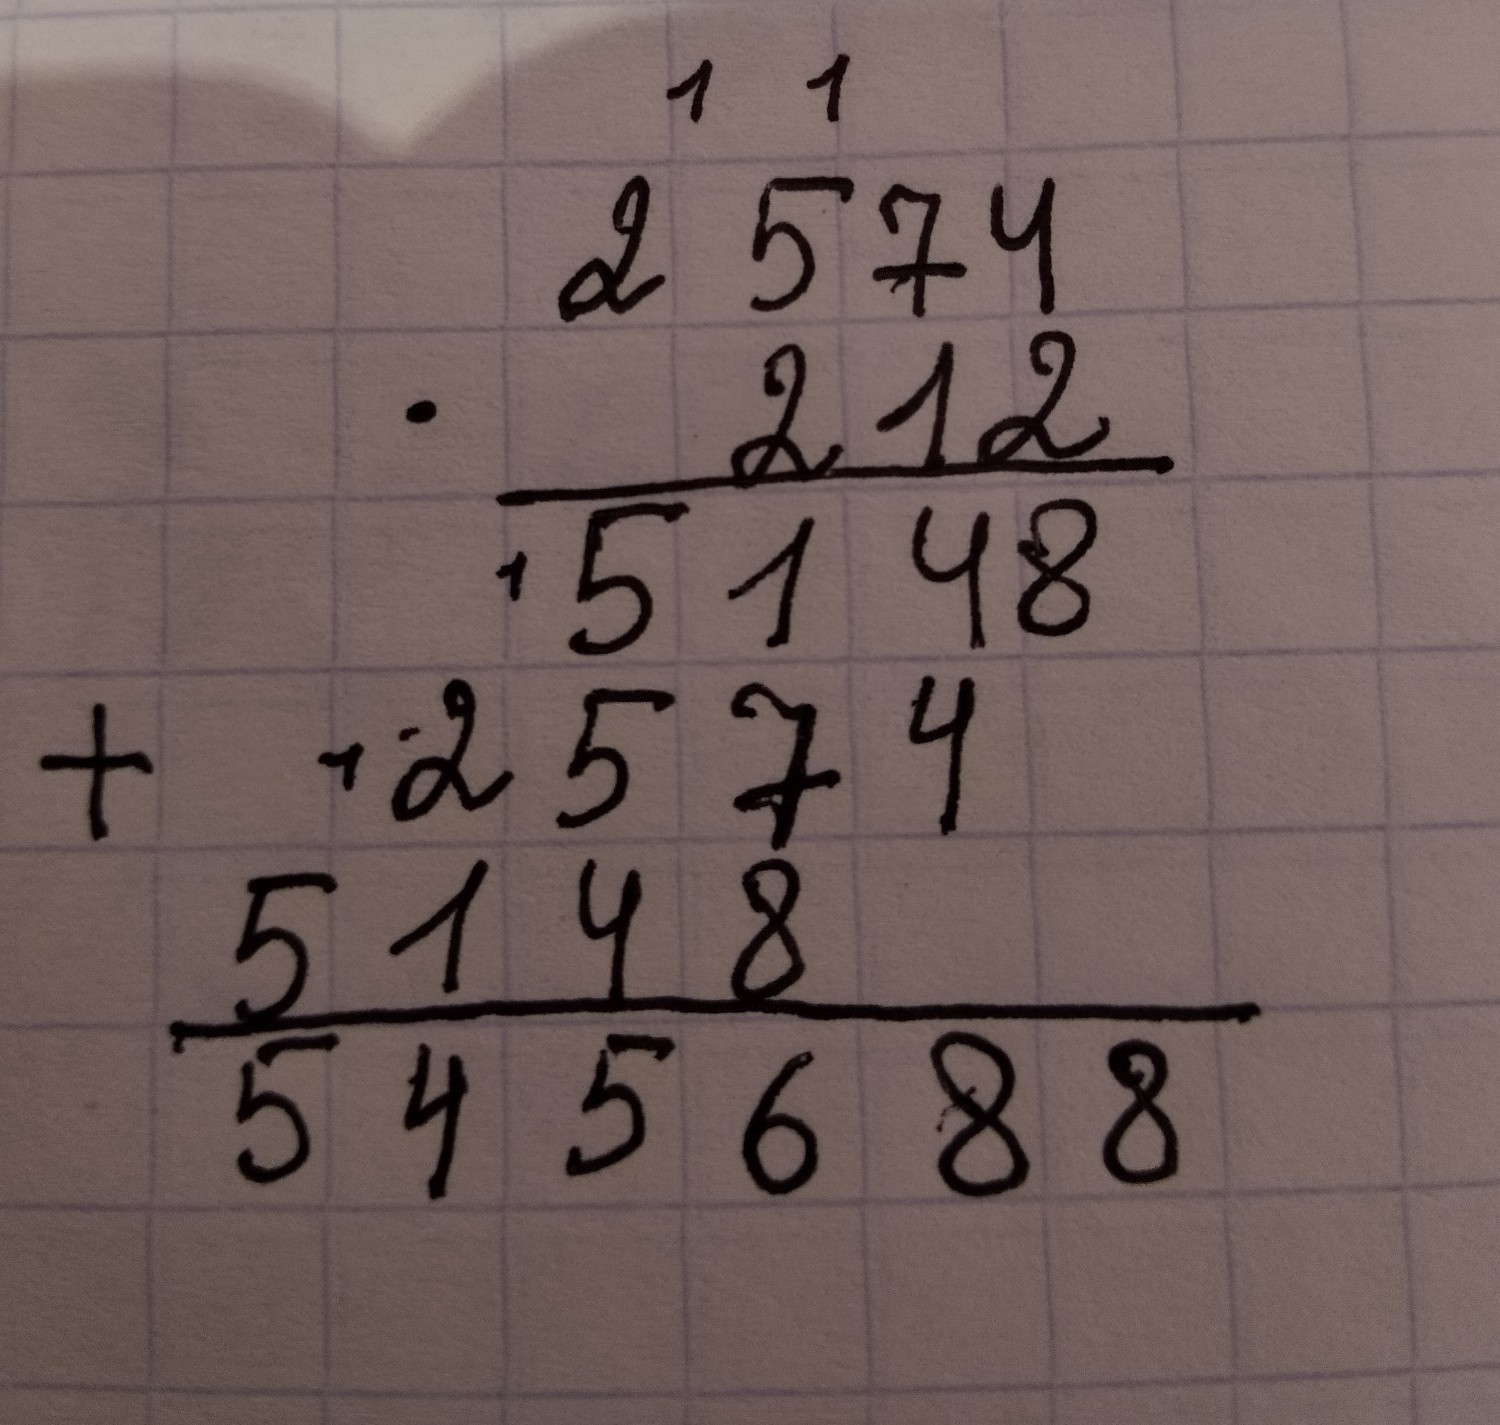 1 1
2 5 7 4
· 2 1 2
1 5 1 4 8
+ 1 2 5 7 4
5 1 4 8
5 4 5 6 8 8